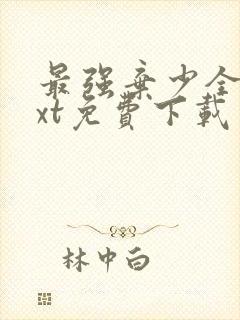 最强弃少全
xt免費下載
林中白